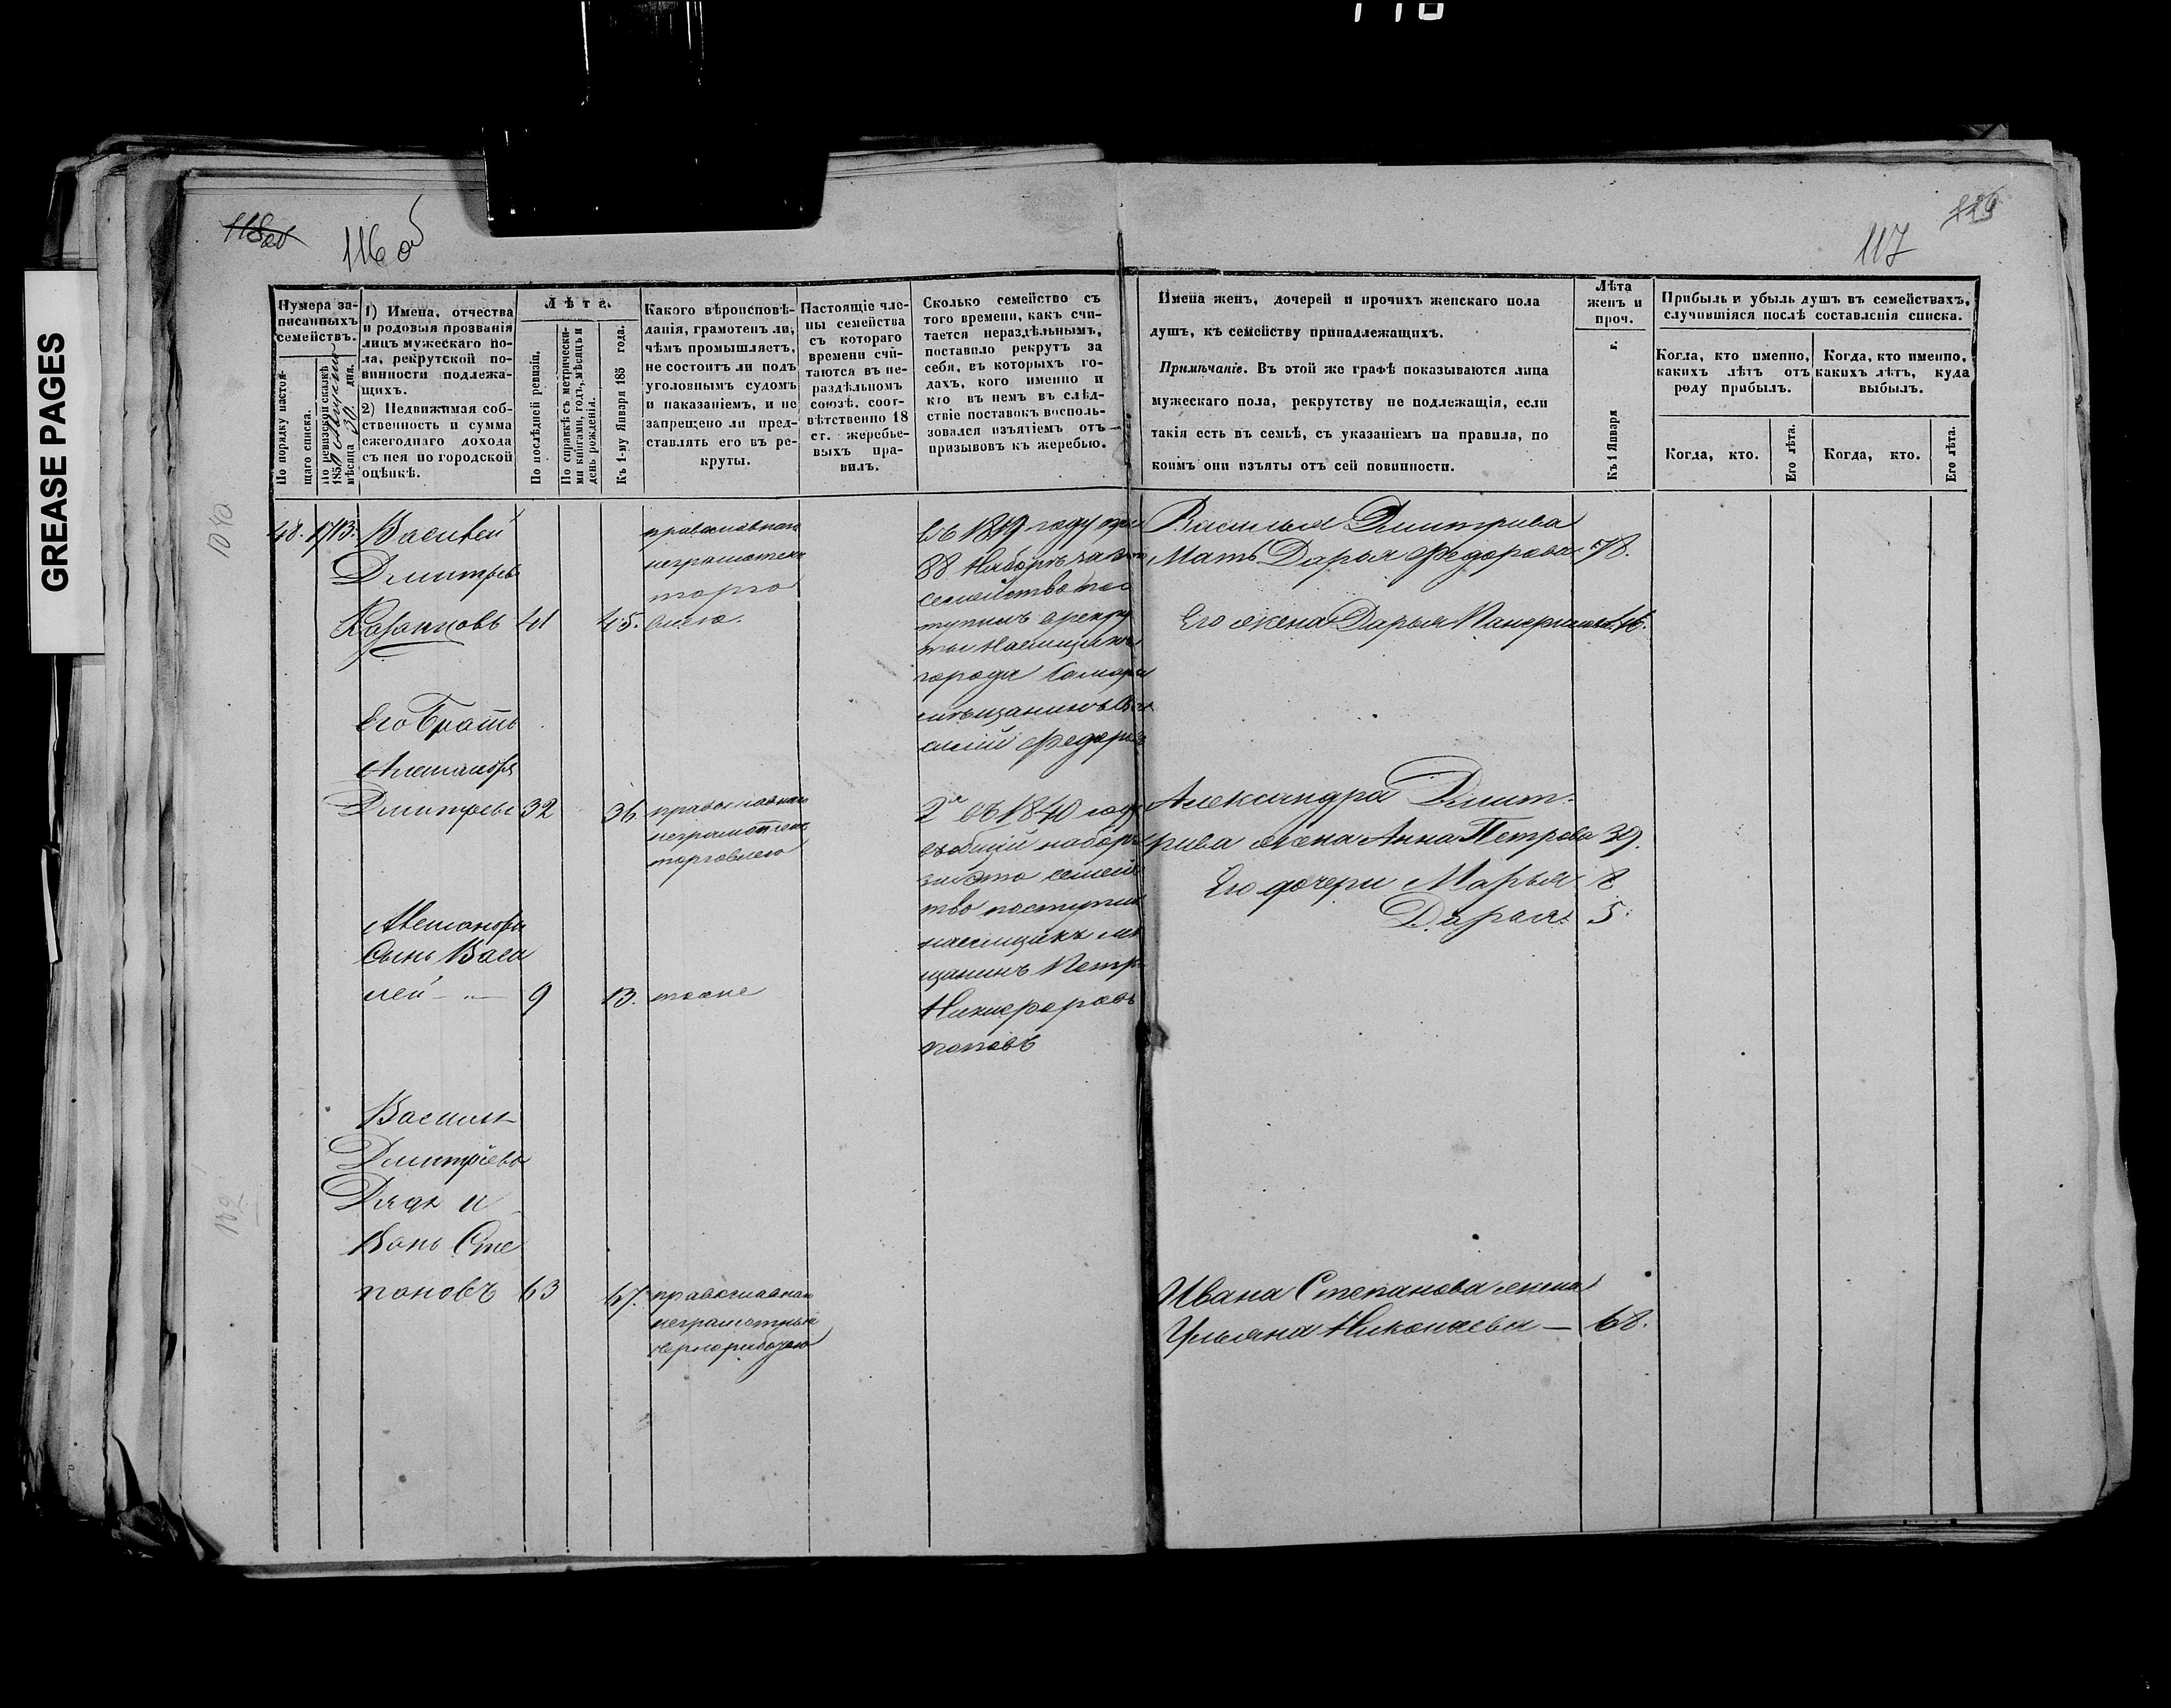 GREASE PAGES
118об
116 об
117
Нумера за-
писанныхъ
семействъ.
По порядку настоя-
щаго списка.
По ревизской сказкѣ
185
мѣсяца 30 дня.
1) Имена, отчества
и родовыя прозванія
лицъ мужескаго по-
ла, рекрутской по-
винности подлежа-
щихъ.
2) Недвижимая соб-
ственность и сумма
ежегоднаго дохода
съ нея по городской
оцѣнкѣ.
Лѣта.
По послѣдней ревизіи.
По справкѣ съ метрически-
ми книгами, годъ, мѣсяцъ и
день рожденія.
Къ 1-му Января 185 года.
Какого вѣроисповѣ-
данія, грамотенъ ли,
чѣмъ промышляетъ,
не состоитъ ли подъ
уголовнымъ судомъ
и наказаніемъ, и не
запрещено ли пред-
ставлять его въ ре-
круты.
Настоящіе чле-
ны семейства
съ котораго
времени счи-
таются въ не-
раздѣльномъ
союзѣ, соот-
вѣтственно 18
ст. жеребье-
выхъ пра-
вилъ.
Сколько семейство съ
того времени, какъ счи-
тается нераздѣльнымъ,
поставило рекрутъ за
себя, въ которыхъ го-
дахъ, кого именно и
кто въ немъ въ слѣд-
ствіе поставокъ восполь-
зовался изъятіемъ отъ
призывовъ къ жеребью.
Имена женъ, дочерей и прочихъ женскаго пола
душъ, къ семейству принадлежащихъ.
Примѣчаніе. Въ этой же графѣ показываются лица
мужескаго пола, рекрутству не подлежащія, если
такія есть въ семьѣ, съ указаніемъ на правила, по
коимъ они изъяты отъ сей повинности.
Лѣта
женъ и
проч.
Къ 1 Января г.
Прибыль и убыль душъ въ семействахъ,
случившіяся послѣ составленія списка.
Когда, кто именно,
какихъ лѣтъ отъ
роду прибылъ.
Когда, кто именно,
какихъ лѣтъ, куда
выбылъ.
Когда, кто.
Его лѣта.
Когда, кто.
Его лѣта.
48. 1713. Василей
Дмитрев
41 45.
православнаго
неграмотенъ
торго
влею.
году при
88 Наборѣ за
семейство пос
тупилъ
города Самары
мѣщанинъ Ва
силій Федоров
Василья Дмитрива
Мать Дарья Федорова 78.
Его жена Дарья 46.
Его Братъ
Александръ
Дмитревъ 32 36
православнаго
неграмотенъ
торговлею
2й въ 1840 году
въ общій наборъ
за это семей
тво поступил
наемщикъ мѣ
щанинъ Петр
Никифоровъ
поповъ
Александра Дмит-
рива жена Анна Петрова 39.
Его дочери Марья 8
Дарья 5.
Александра
Сынъ Васи
лей 9 13. тоже
Василья
Дмитріева
Дядя И
ванъ Сте
пановъ 63 67.
православнаго
неграмотный
чернорабочею
Ивана Степанова жена
Ульяна Николаева — 68.